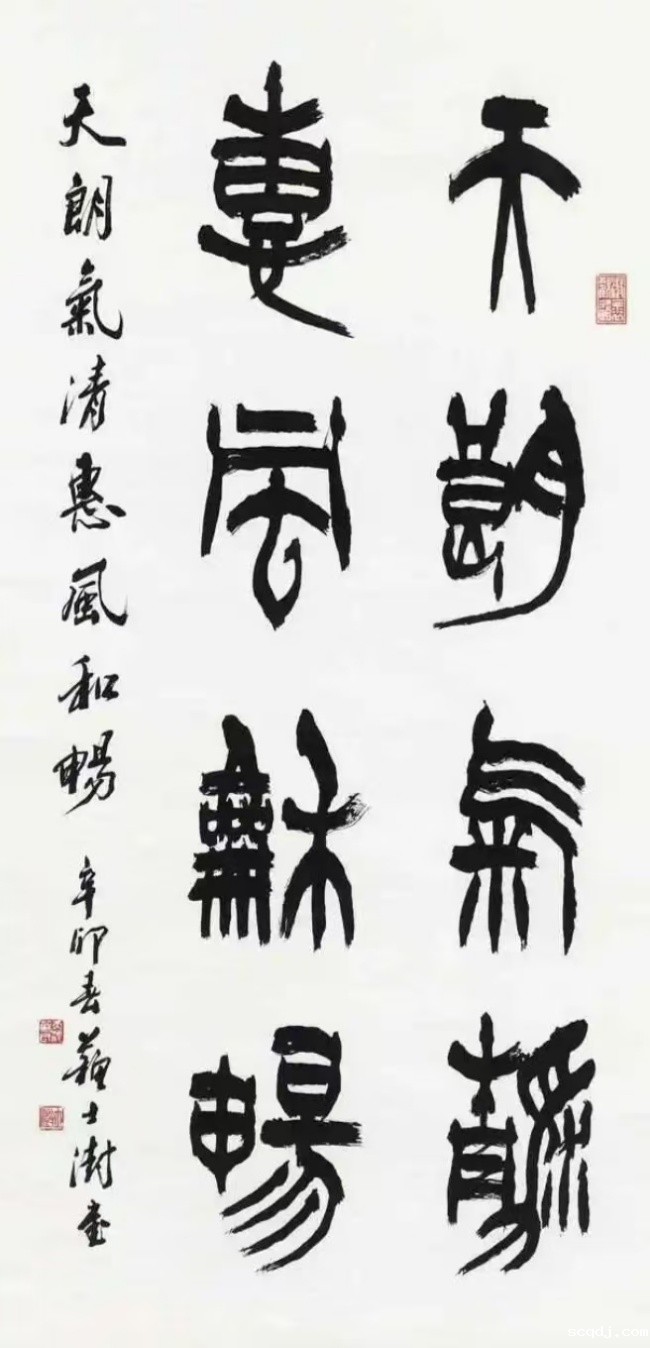 天朗氣清
惠風龢暢
天朗氣清惠風和暢 辛卯春蘇士澍書
scqdj.com